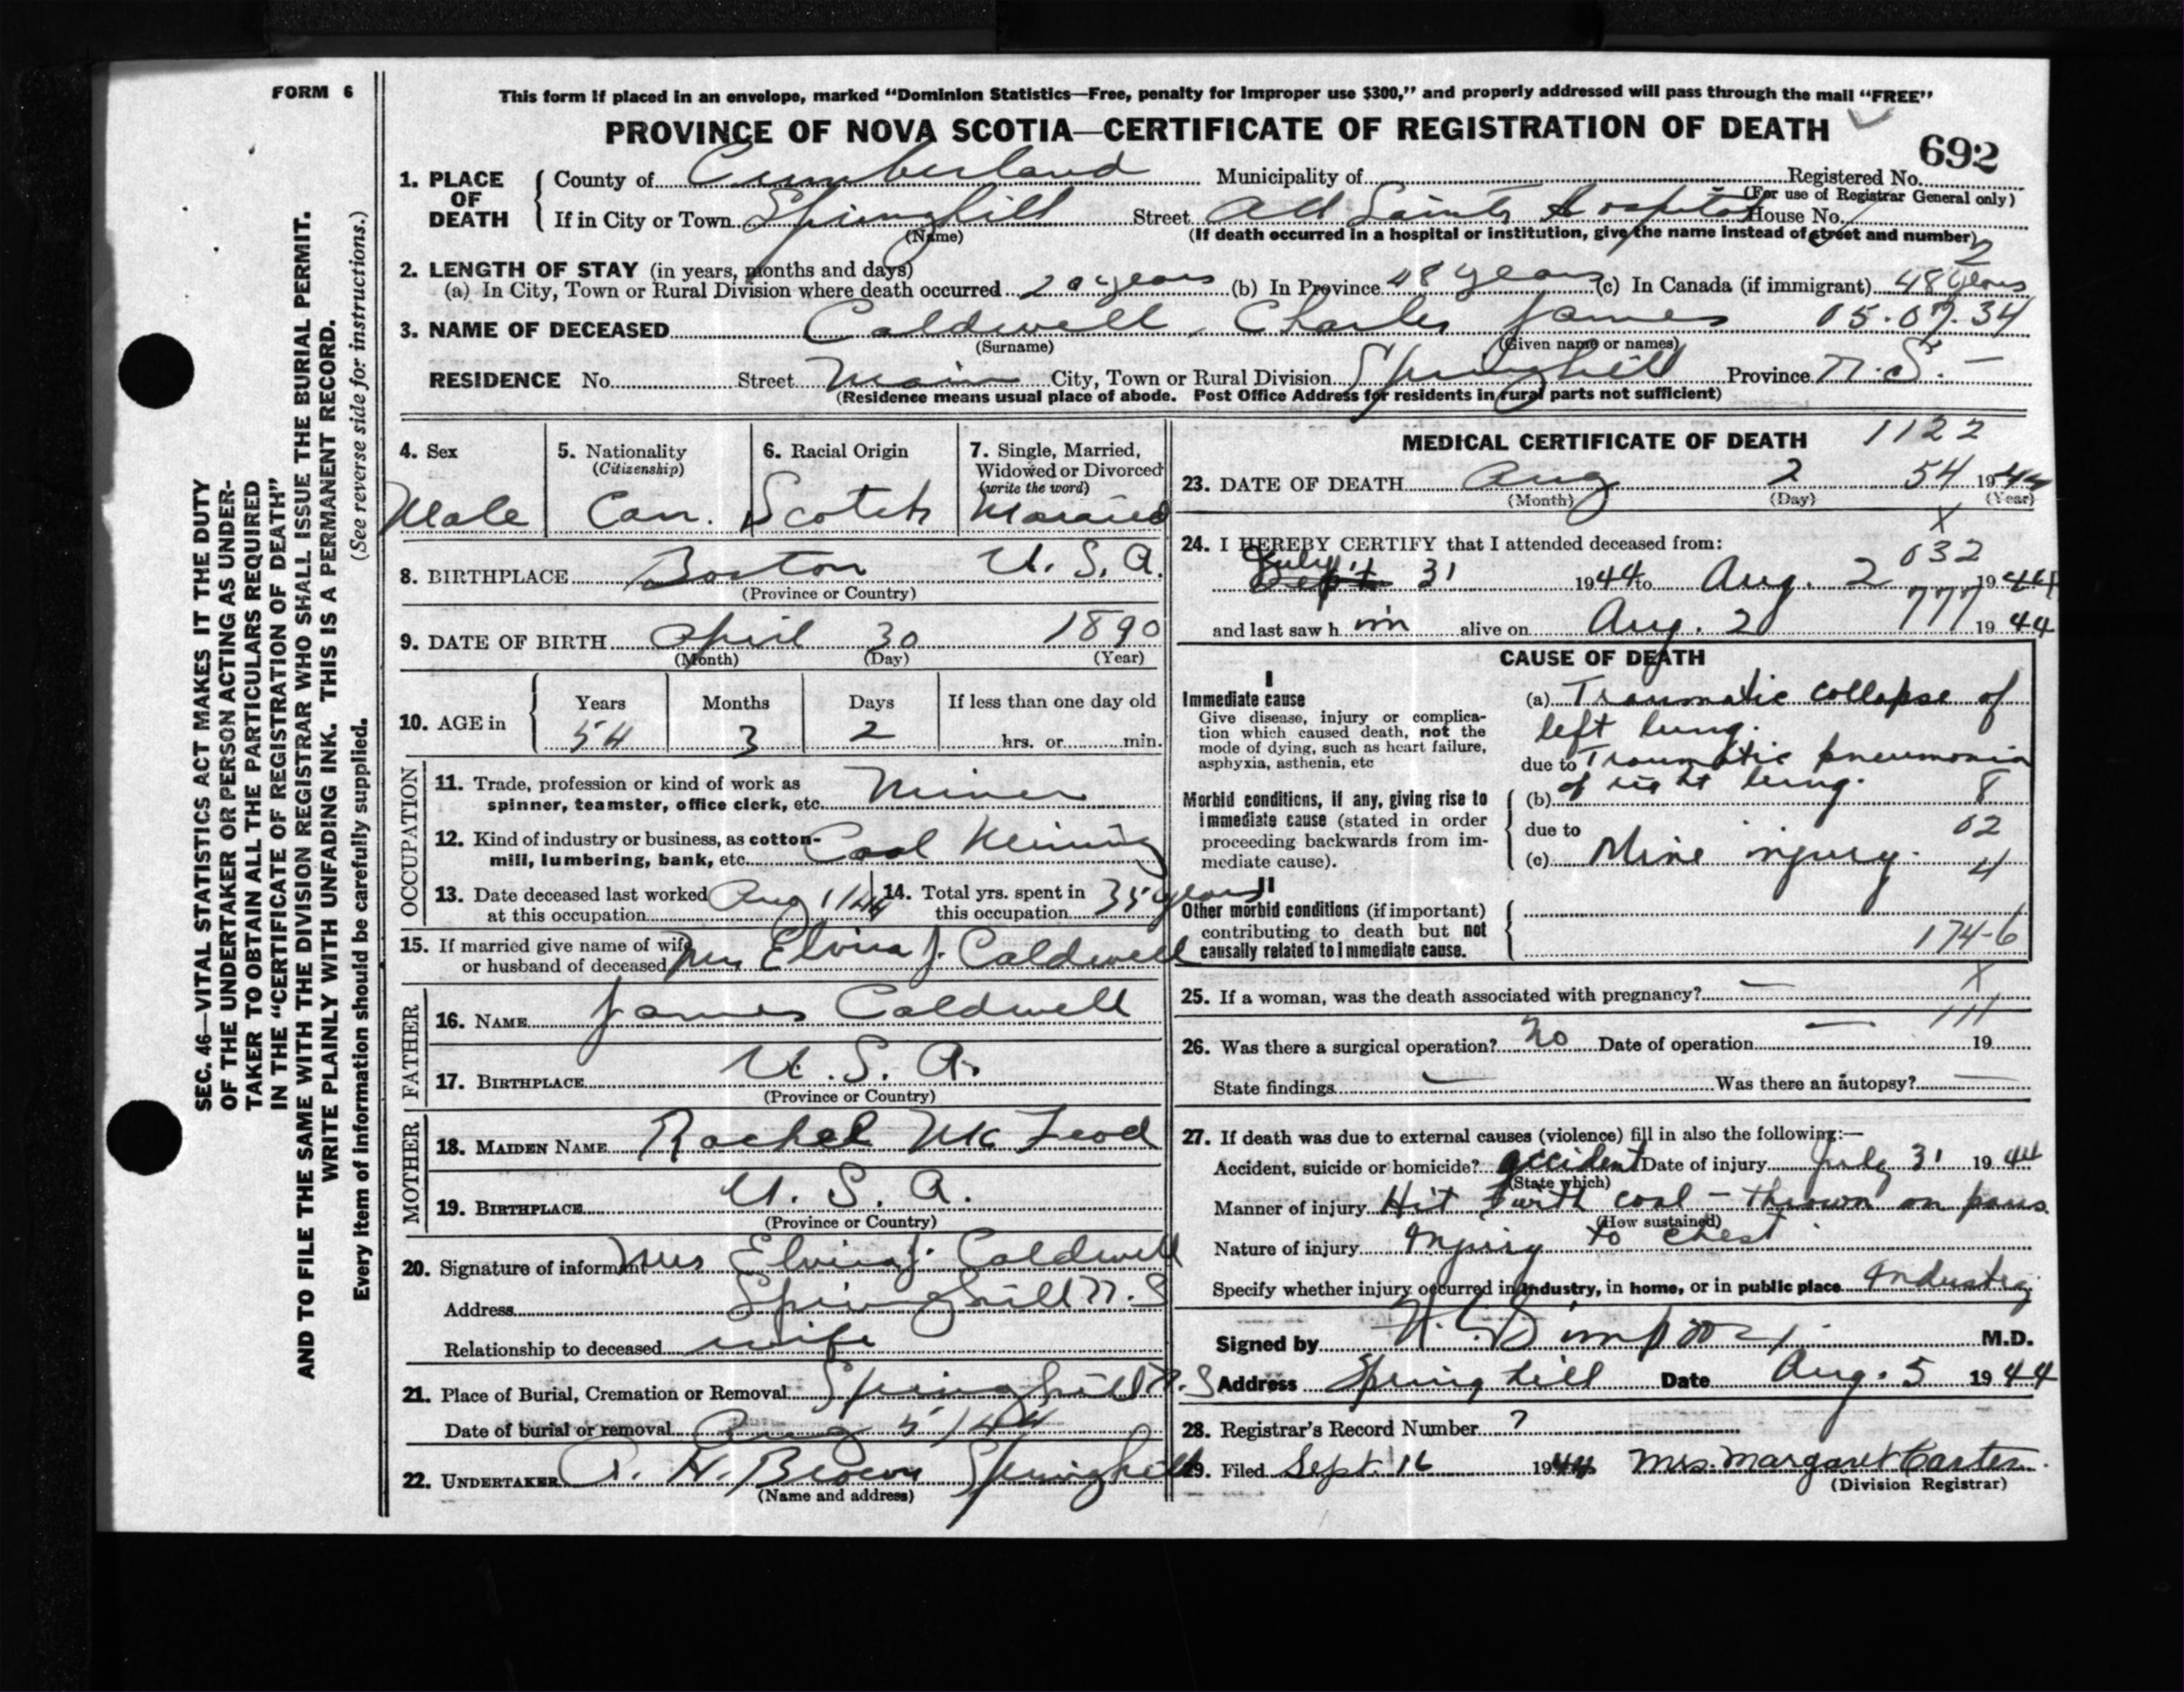 FORM 6
This form if placed in an envelope, marked “Dominion Statistics—Free, penalty for improper use $300,” and properly addressed will pass through the mail “FREE”
PROVINCE OF NOVA SCOTIA—CERTIFICATE OF REGISTRATION OF DEATH
692
1. PLACE OF DEATH
County of Cumberland Municipality of Registered No.
(For use of Registrar General only)
If in City or Town Springhill Street All Saints Hospital House No.
(Name) (If death occurred in a hospital or institution, give the name instead of street and number)
2
2. LENGTH OF STAY (in years, months and days)
(a) In City, Town or Rural Division where death occurred 20 years (b) In Province 48 years (c) In Canada (if immigrant) 48 years
3. NAME OF DECEASED Caldwell, Charles James 05.07.34
(Surname) (Given name or names)
RESIDENCE No. Street Main City, Town or Rural Division Springhill Province N.S. —
(Residence means usual place of abode. Post Office Address for residents in rural parts not sufficient)
4. Sex
Male
5. Nationality
(Citizenship)
Can.
6. Racial Origin
Scotch
7. Single, Married,
Widowed or Divorced
(write the word)
Married
8. BIRTHPLACE Boston U.S.A.
(Province or Country)
9. DATE OF BIRTH April 30 1890
(Month) (Day) (Year)
10. AGE in
Years Months Days If less than one day old
54 3 2 hrs. or min.
OCCUPATION
11. Trade, profession or kind of work as
spinner, teamster, office clerk, etc. Miner
12. Kind of industry or business, as cotton-
mill, lumbering, bank, etc. Coal Mining
13. Date deceased last worked Aug 1/44
at this occupation
14. Total yrs. spent in
this occupation 35 years
15. If married give name of wife
or husband of deceased Mrs Elvira J. Caldwell
FATHER
16. NAME James Caldwell
17. BIRTHPLACE U.S.A.
(Province or Country)
MOTHER
18. MAIDEN NAME Rachel McLeod
19. BIRTHPLACE U.S.A.
(Province or Country)
20. Signature of informant Mrs Elvira J. Caldwell
Address Springhill N.S
Relationship to deceased wife
21. Place of Burial, Cremation or Removal Springhill N.S
Date of burial or removal Aug 5/44
22. UNDERTAKER H. Brown Springhill
(Name and address)
MEDICAL CERTIFICATE OF DEATH 1122
23. DATE OF DEATH Aug 2 54 1944
(Month) (Day) (Year)
X
24. I HEREBY CERTIFY that I attended deceased from:
032
July
Sept. 31 1944 to Aug. 2 1944
and last saw him alive on Aug. 2 777 1944
CAUSE OF DEATH
I
Immediate cause
Give disease, injury or complica-
tion which caused death, not the
mode of dying, such as heart failure,
asphyxia, asthenia, etc
(a) Traumatic collapse of
left lung.
due to Traumatic pneumonia
Morbid conditions, if any, giving rise to
immediate cause (stated in order
proceeding backwards from im-
mediate cause).
(b) of right lung. 8
due to 02
(c) Mine injury. 4
II
Other morbid conditions (if important)
contributing to death but not
causally related to immediate cause.
174-6
X
25. If a woman, was the death associated with pregnancy? —
111
26. Was there a surgical operation? No Date of operation — 19
State findings — Was there an autopsy? —
27. If death was due to external causes (violence) fill in also the following:—
Accident, suicide or homicide? accident Date of injury July 31 1944
(State which)
Manner of injury Hit with coal – thrown on pans.
(How sustained)
Nature of injury Injury to chest
Specify whether injury occurred in industry, in home, or in public place Industry
Signed by M.D.
Address Springhill Date Aug. 5 1944
28. Registrar's Record Number 7
29. Filed Sept. 16 1944 Mrs. Margaret Carter.
(Division Registrar)
SEC. 46—VITAL STATISTICS ACT MAKES IT THE DUTY
OF THE UNDERTAKER OR PERSON ACTING AS UNDER-
TAKER TO OBTAIN ALL THE PARTICULARS REQUIRED
IN THE “CERTIFICATE OF REGISTRATION OF DEATH”
AND TO FILE THE SAME WITH THE DIVISION REGISTRAR WHO SHALL ISSUE THE BURIAL PERMIT.
WRITE PLAINLY WITH UNFADING INK. THIS IS A PERMANENT RECORD.
Every item of information should be carefully supplied. (See reverse side for instructions.)